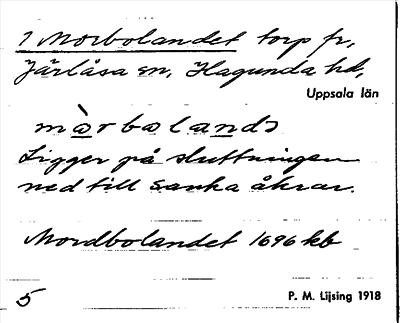 1 Morbolandet torp fr.
Järlåsa sn, Hagunda hd,
Uppsala län
Ligger på sluttningen
ned till sanka åkrar.
Mordbolandet 1696 kb
5
P. M. Lijsing 1918